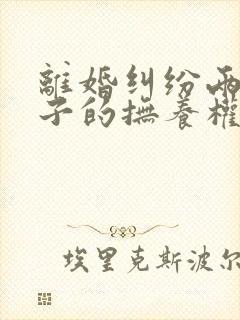 離婚糾紛兩
子的撫養權
埃里克斯波尔